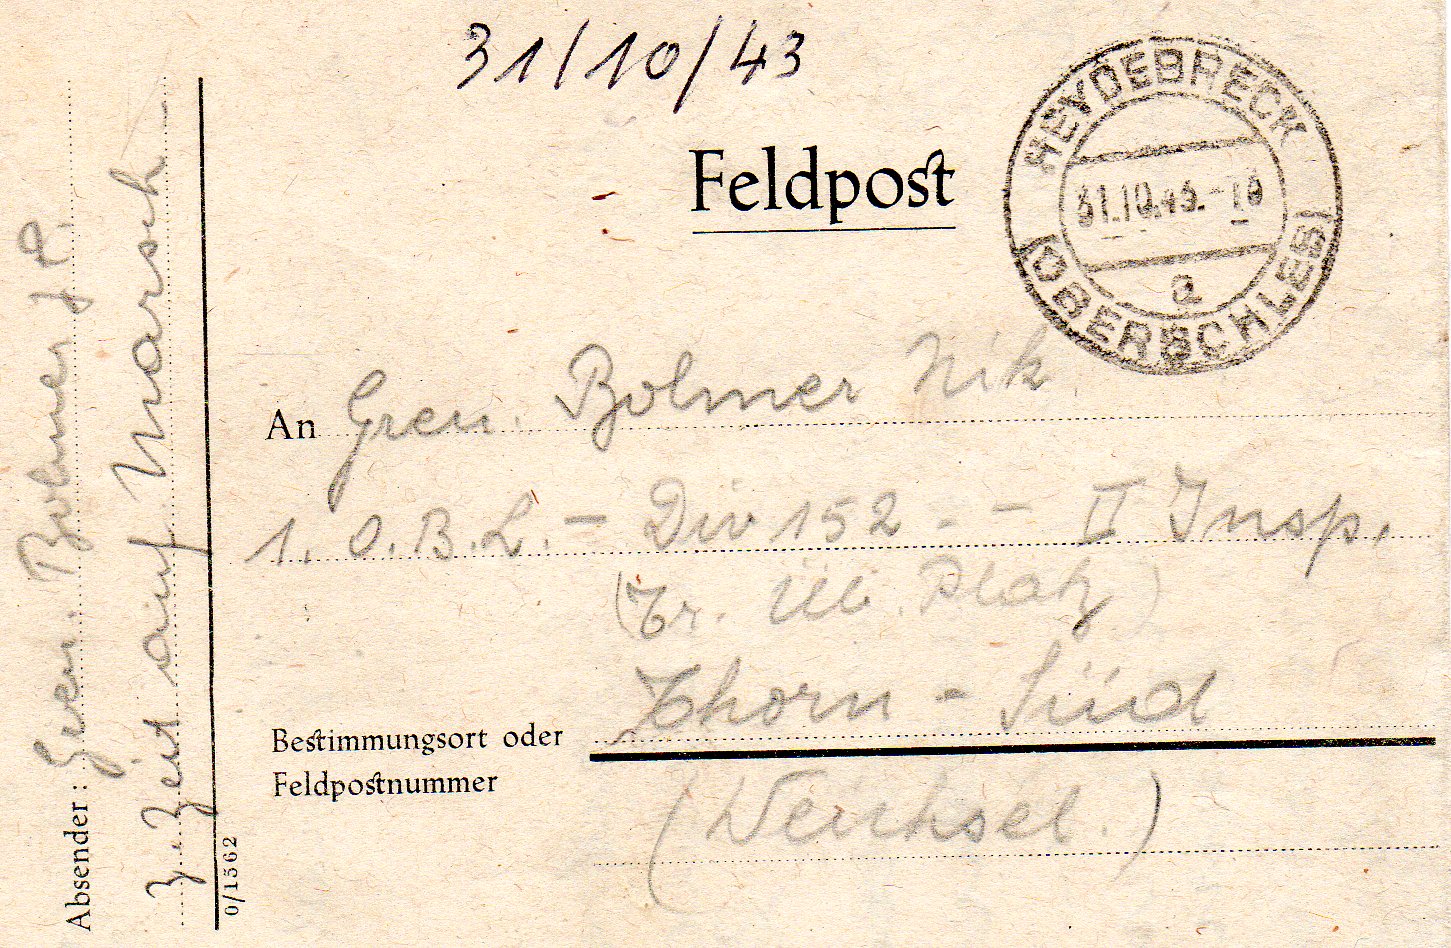 31/10/43
Feldpost
HEYDEBRECK
31.10.43.-18
a
(OBERSCHLES)
An Gren. Bolmer Nik
1. O.B.L. - Div 152 - - II Insp.
(Tr. Üb. Platz)
Bestimmungsort oder
Feldpostnummer
Thorn - Süd
(Weichsel.)
Absender: Gren. Bolmer J.P.
z. Zeit auf Marsch
0/1562